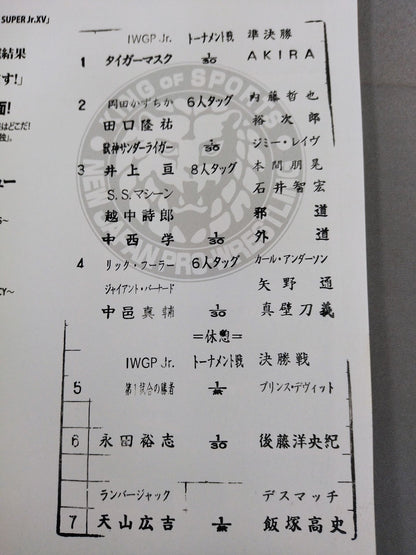 SUPER Jr.XV」
結果
す!」
面!
はどこだ!
ュー
S〜
CY〜
KING OF SPORTS
NEW JAPAN PRO-WRESTLING
IWGP Jr. トーナメント戦 準決勝
1 タイガーマスク 1/30 AKIRA
2 岡田かずちか 6人タッグ 内藤哲也
田口隆祐 裕次郎
獣神サンダーライガー 1/30 ジミー・レイヴ
3 井上亘 8人タッグ 本間朋晃
S.S.マシーン 石井智宏
越中詩郎 邪道
中西学 1/30 外道
4 リック・フーラー 6人タッグ カール・アンダーソン
ジャイアント・バーナード 矢野通
中邑真輔 1/30 真壁刀義
=休憩=
IWGP Jr. トーナメント戦 決勝戦
5 第1試合の勝者 1/無 プリンス・デヴィット
6 永田裕志 1/30 後藤洋央紀
ランバージャック デスマッチ
7 天山広吉 1/無 飯塚高史